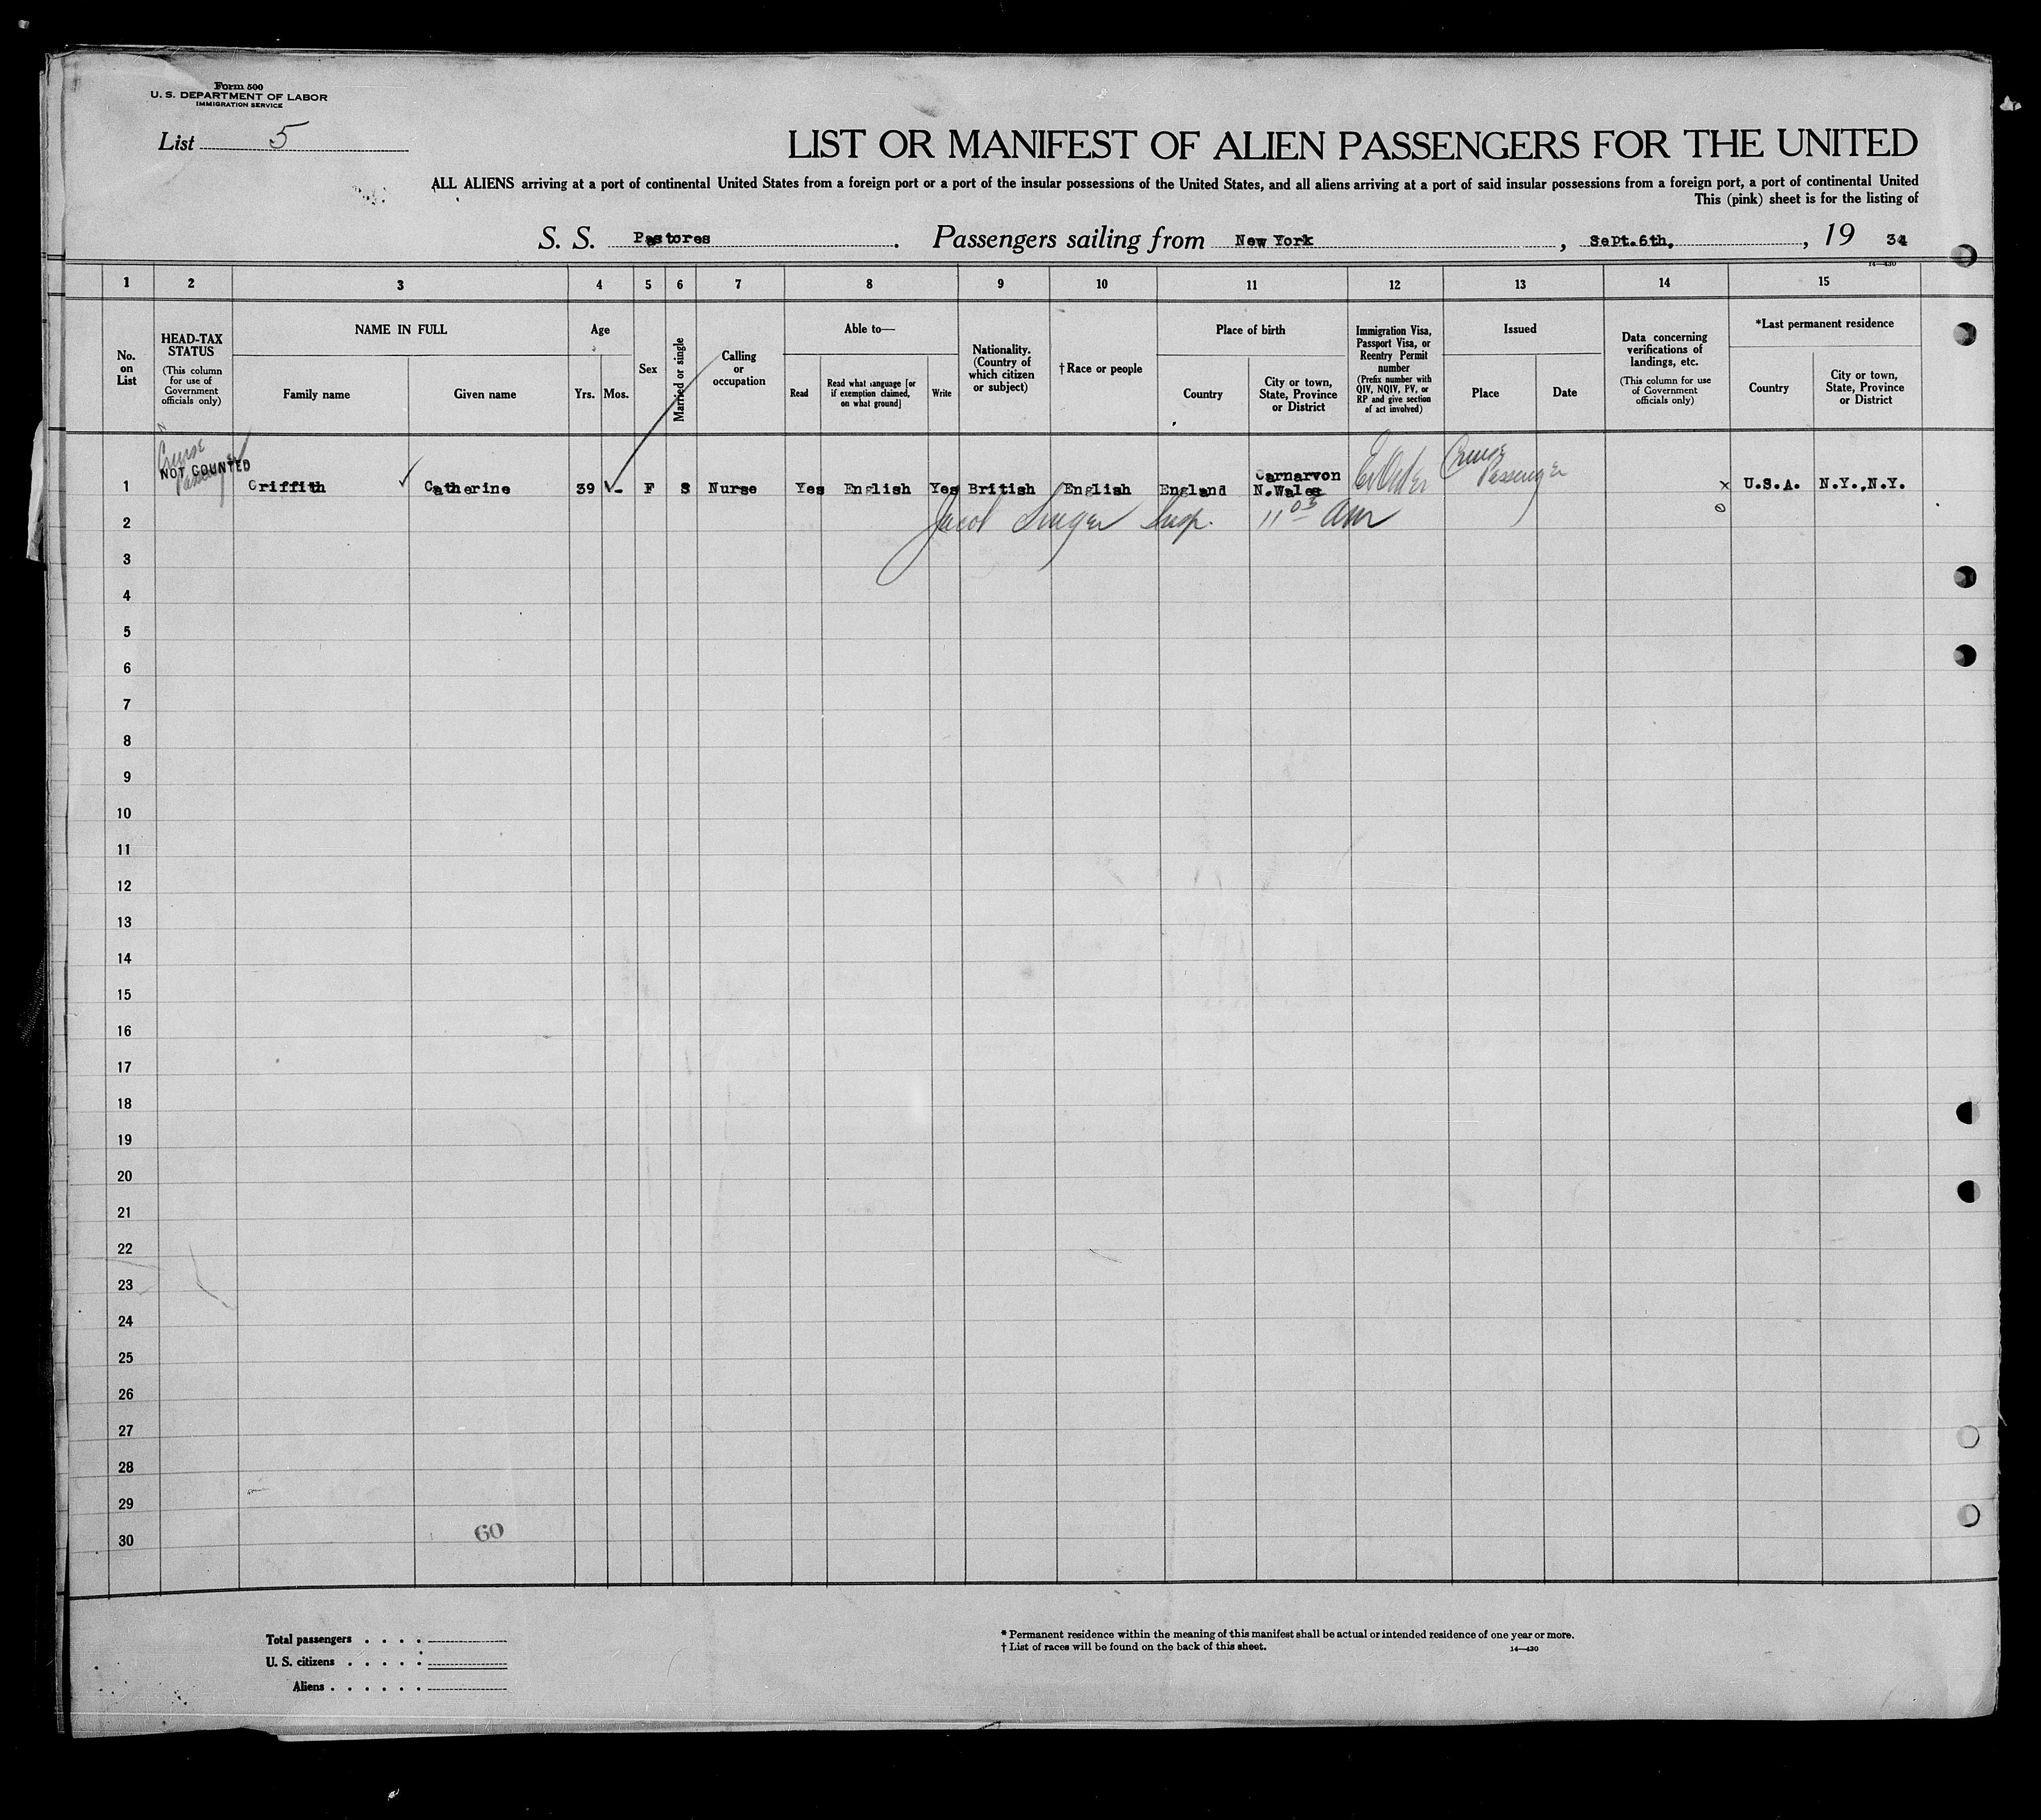 Form 500
U. S. DEPARTMENT OF LABOR
IMMIGRATION SERVICE
List 5
LIST OR MANIFEST OF ALIEN PASSENGERS FOR THE UNITED
ALL ALIENS arriving at a port of continental United States from a foreign port or a port of the insular possessions of the United States, and all aliens arriving at a port of said insular possessions from a foreign port, a port of continental United
This (pink) sheet is for the listing of
S. S. Pastores. Passengers sailing from New York, Sept.6th, , 19 34
14—430
1 2 3 4 5 6 7 8 9 10 11 12 13 14 15
No. on List
HEAD-TAX STATUS
(This column for use of Government officials only)
NAME IN FULL
Family name
Given name
Age
Yrs.
Mos.
Sex
Married or single
Calling or occupation
Able to—
Read
Read what language [or if exemption claimed, on what ground]
Write
Nationality. (Country of which citizen or subject)
†Race or people
Place of birth
Country
City or town, State, Province or District
Immigration Visa, Passport Visa, or Reentry Permit number
(Prefix number with QIV, NQIV, PV, or RP and give section of act involved)
Issued
Place
Date
Data concerning verifications of landings, etc.
(This column for use of Government officials only)
*Last permanent residence
Country
City or town, State, Province or District
Cruise Passenger
NOT COUNTED
1 Griffith ✓ Catherine 39 ✓- F S Nurse Yes English Yes British English England Carnarvon N.Wales Cruise Passenger x U.S.A. N.Y.,N.Y.
2 Jacob Singer Insp. 11 03 AM
3
4
5
6
7
8
9
10
11
12
13
14
15
16
17
18
19
20
21
22
23
24
25
26
27
28
29
30
60
Total passengers . . . .
U. S. citizens . . . . .
Aliens . . . . . .
* Permanent residence within the meaning of this manifest shall be actual or intended residence of one year or more.
† List of races will be found on the back of this sheet.
14—430